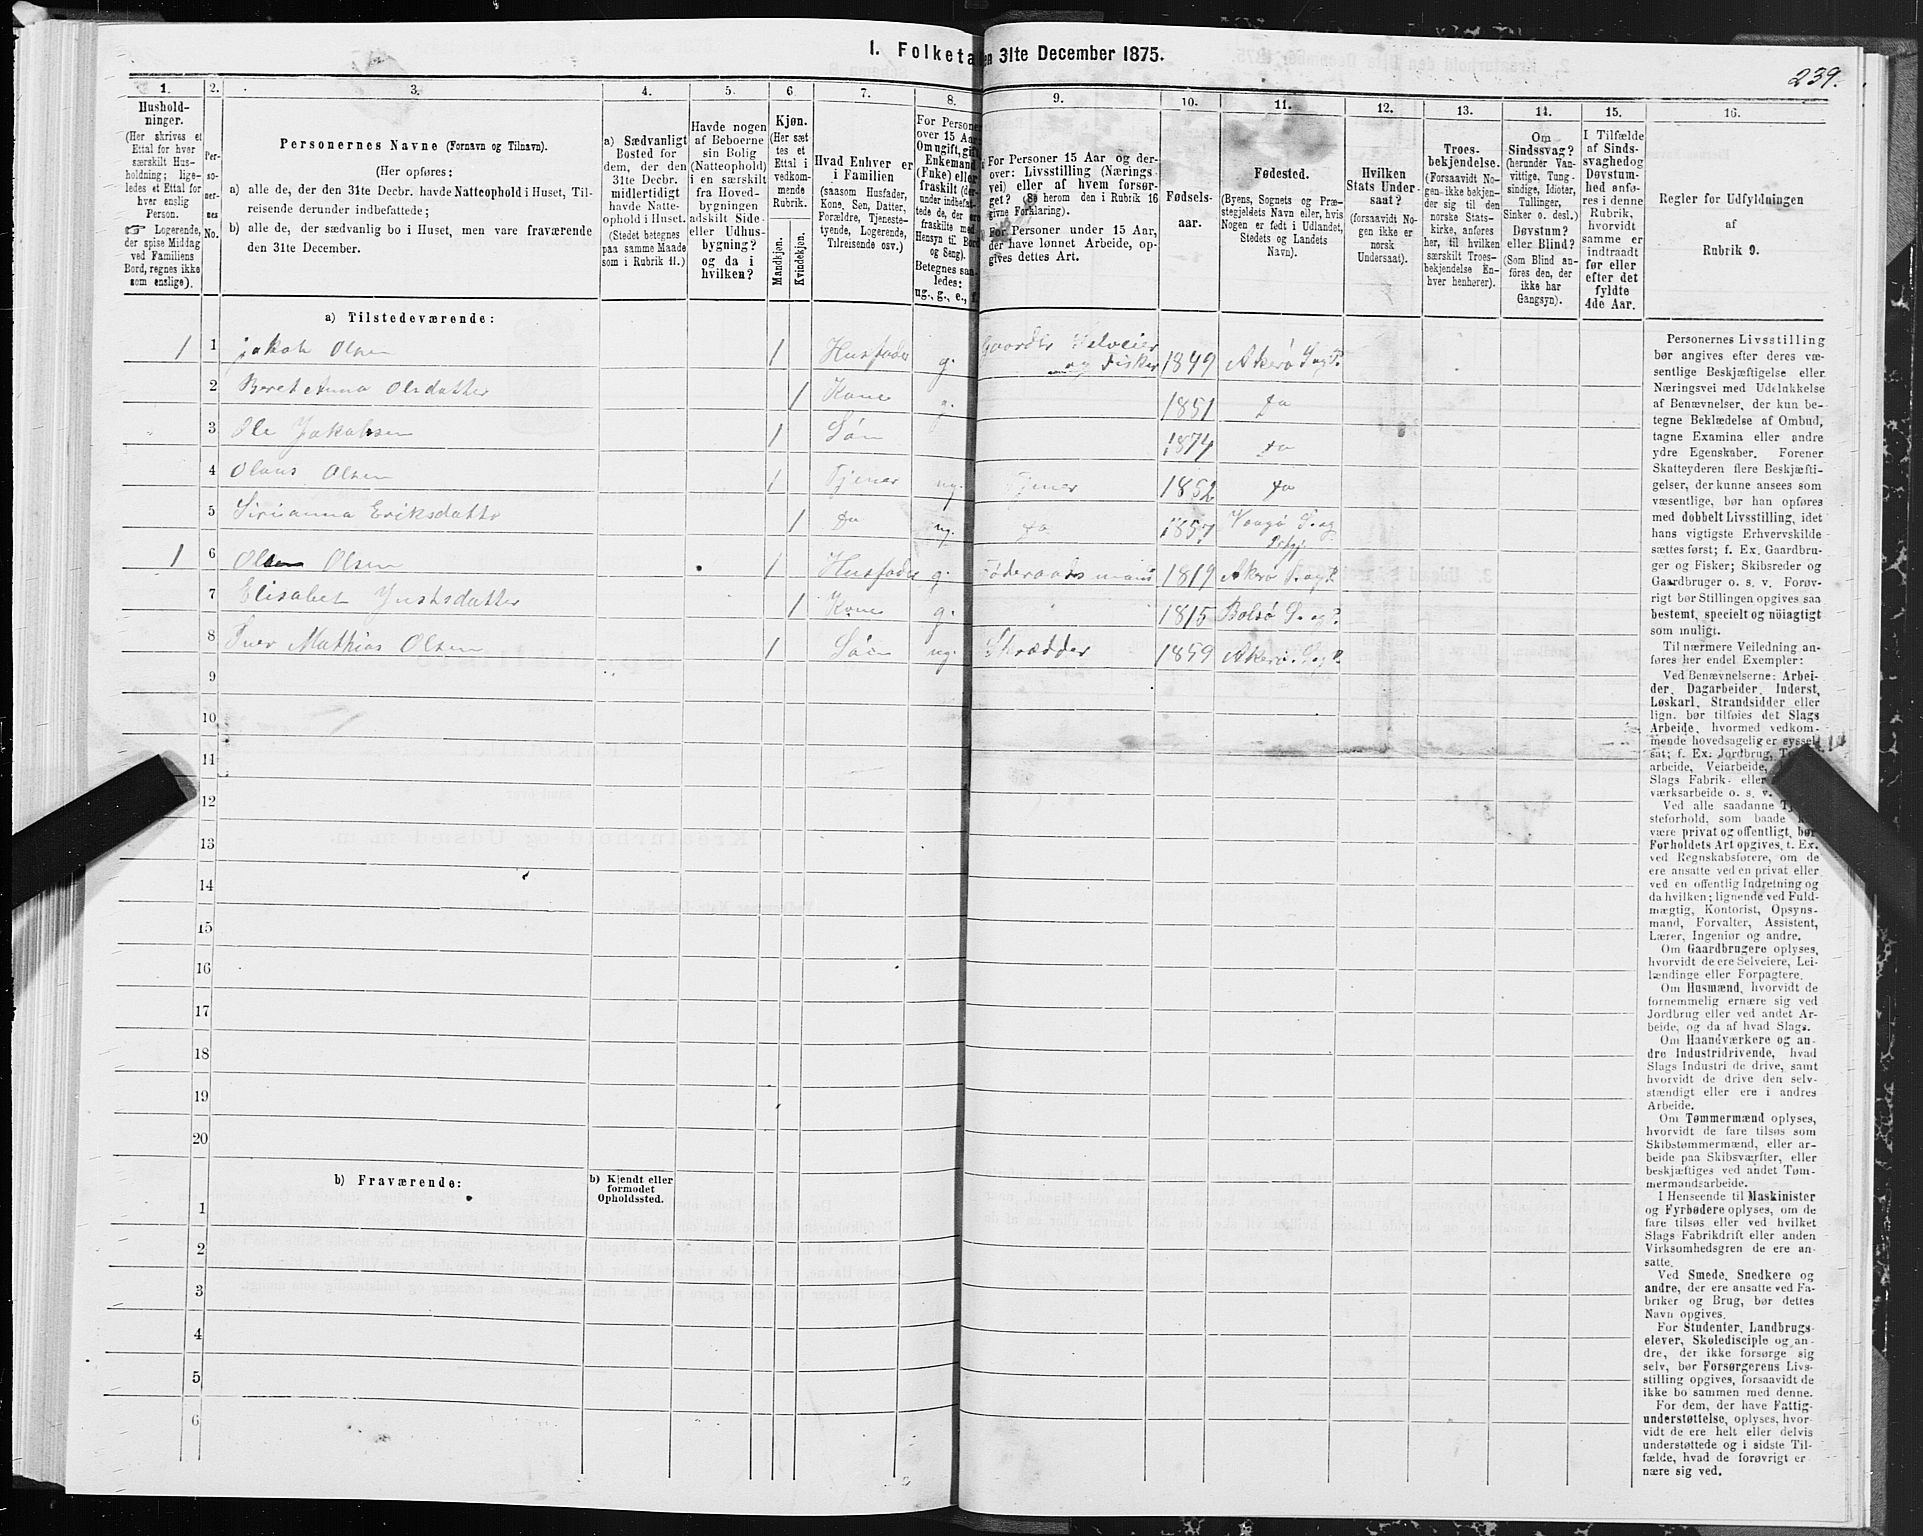 1. Folketa en 31te December 1875.
239.
1. 2. 3. 4. 5. 6. 7. 8. 9. 10. 11. 12. 13. 14. 15. 16.
Hushold-
ninger.
(Her skrives et
Ettal for hver
særskilt Hus-
holdning; lige-
ledes et Ettal for
hver enslig
Person.
☞ Logerende,
der spise Middag
ved Familiens
Bord, regnes ikke
som enslige).
Per-
so-
ner-
nes
No.
Personernes Navne (Fornavn og Tilnavn).
(Her opføres:
a) alle de, der den 31te Decbr. havde Natteophold i Huset, Til-
reisende derunder indbefattede;
b) alle de, der sædvanlig bo i Huset, men vare fraværende
den 31te December.
a) Sædvanligt
Bosted for
dem, der den
31te Decbr.
midlertidigt
havde Natte-
ophold i Huset.
(Stedet betegnes
paa samme Maade
som i Rubrik 11.)
Havde nogen
af Beboerne
sin Bolig
(Natteophold)
i en særskilt
fra Hoved-
bygningen
adskilt Side-
eller Udhus-
bygning?
og da i
hvilken?
Kjøn.
(Her sæt-
tes et
Ettal i
vedkom-
mende
Rubrik.
Mandkjøn.
Kvindekjøn.
Hvad Enhver er
i Familien
(saasom Husfader,
Kone, Søn, Datter,
Forældre, Tjeneste-
tyende, Logerende,
Tilreisende osv.)
For Personer
over 15 Aar:
Om ugift, gift,
Enkemand
(Enke) eller
fraskilt (der-
under indbefat-
tede de, der ere
fraskilte med
Hensyn til Bord
og Seng).
Betegnes saa-
ledes:
ug., g., e., f.
For Personer 15 Aar og der-
over: Livsstilling (Nærings-
vei) eller af hvem forsør-
get? (Se herom den i Rubrik 16
givne Forklaring).
For Personer under 15 Aar,
der have lønnet Arbeide, op-
gives dettes Art.
Fødsels-
aar.
Fødested.
(Byens, Sognets og Præ-
stegjeldets Navn eller, hvis
Nogen er født i Udlandet,
Stedets og Landets
Navn).
Hvilken
Stats Under-
saat?
(forsaavidt No-
gen ikke er
norsk
Undersaat).
Troes-
bekjendelse.
(Forsaavidt No-
gen ikke bekjen-
der sig til den
norske Stats-
kirke, anføres
her, til hvilken
særskilt Troes-
bekjendelse En-
hver henhører).
Om
Sindssvag?
(herunder Van-
vittige, Tung-
sindige, Idioter,
Tullinger,
Sinker o. desl.)
Døvstum?
eller Blind?
(Som Blind an-
føres den, der
ikke har
Gangsyn).
I Tilfælde
af Sinds-
svaghed og
Døvstum-
hed anfø-
res i denne
Rubrik,
hvorvidt
samme er
indtraadt
før eller
efter det
fyldte
4de Aar.
Regler for Udfyldningen
af
Rubrik 9.
a) Tilstedeværende:
1 1 Jakob Olsen 1 Husfader g. Gaardbr Selveier
og Fisker 1849 Akerø S og P.
2 Beret Anna Olsdatter 1 Kone g. 1851 do
3 Ole Jakobsen 1 Søn 1874 do
4 Olaus Olsen 1 Tjener ug. Tjener 1852 do
5 Sirianna Eriksdatter 1 do ug. do 1857 Vaagø S. og
1 6 Olsen 1 Husfader g. Føderaadsmand 1819 Akerø S. og P.
7 Elisabet Justsdatter 1 Kone g. 1815 Bolsø S. og P.
8 Iver Mathias Olsen 1 Søn ug. Skrædder 1859 Akerø S og P.
9
10
11
12
13
14
15
16
17
18
19
20
b) Fraværende:
b) Kjendt eller
formodet
Opholdssted.
1
2
3
4
5
6
Personernes Livsstilling
bør angives efter deres væ-
sentlige Beskjæftigelse eller
Næringsvei med Udelukkelse
af Benævnelser, der kun be-
tegne Beklædelse af Ombud,
tagne Examina eller andre
ydre Egenskaber. Forener
Skatteyderen flere Beskjæfti-
gelser, der kunne ansees som
væsentlige, bør han opføres
med dobbelt Livsstilling, idet
hans vigtigste Erhvervskilde
sættes først; f. Ex. Gaardbru-
ger og Fisker; Skibsreder og
Gaardbruger o. s. v. Forøv-
rigt bør Stillingen opgives saa
bestemt, specielt og nøiagtigt
som muligt.
Til nærmere Veiledning an-
føres her endel Exempler:
Ved Benævnelserne: Arbei-
der, Dagarbeider, Inderst,
Løskarl, Strandsidder eller
lign. bør tilføies det Slags
Arbeide, hvormed vedkom-
mende hovedsagelig er syssel-
sat; f. Ex. Jordbrug,
arbeide, Veiarbeide,
Slags Fabrik- eller
værksarbeide o. s. v.
Ved alle saadanne
steforhold, som baade
være privat og offentligt, bør
Forholdets Art opgives, t. Ex.
ved Regnskabsførere, om de
ere ansatte ved en privat eller
ved en offentlig Indretning og
da hvilken; lignende ved Fuld-
mægtig, Kontorist, Opsyns-
mand, Forvalter, Assistent,
Lærer, Ingeniør og andre.
Om Gaardbrugere oplyses,
hvorvidt de ere Selveiere, Lei-
lændinge eller Forpagtere.
Om Husmænd, hvorvidt de
fornemmelig ernære sig ved
Jordbrug eller ved andet Ar-
beide, og da af hvad Slags.
Om Haandværkere og an-
dre Industridrivende, hvad
Slags Industri de drive, samt
hvorvidt de drive den selv-
stændigt eller ere i andres
Arbeide.
Om Tømmermænd oplyses,
hvorvidt de fare tilsøs som
Skibstømmermænd, eller ar-
beide paa Skibsværfter, eller
beskjæftiges ved andet Tøm-
mermandsarbeide.
I Henseende til Maskinister
og Fyrbødere oplyses, om de
fare tilsøs eller ved hvilket
Slags Fabrikdrift eller anden
Virksomhedsgren de ere an-
satte.
Ved Smede, Snedkere og
andre, der ere ansatte ved Fa-
briker og Brug, bør dettes
Navn opgives.
For Studenter, Landbrugs-
elever, Skoledisciple og an-
dre, der ikke forsørge sig
selv, bør Forsørgerens Livs-
stilling opgives, forsaavidt de
ikke bo sammen med denne.
For dem, der have Fattig-
understøttelse, oplyses, hvor-
vidt de ere helt eller delvis
understøttede og i sidste Til-
fælde, hvad de forøvrigt er-
nære sig ved.